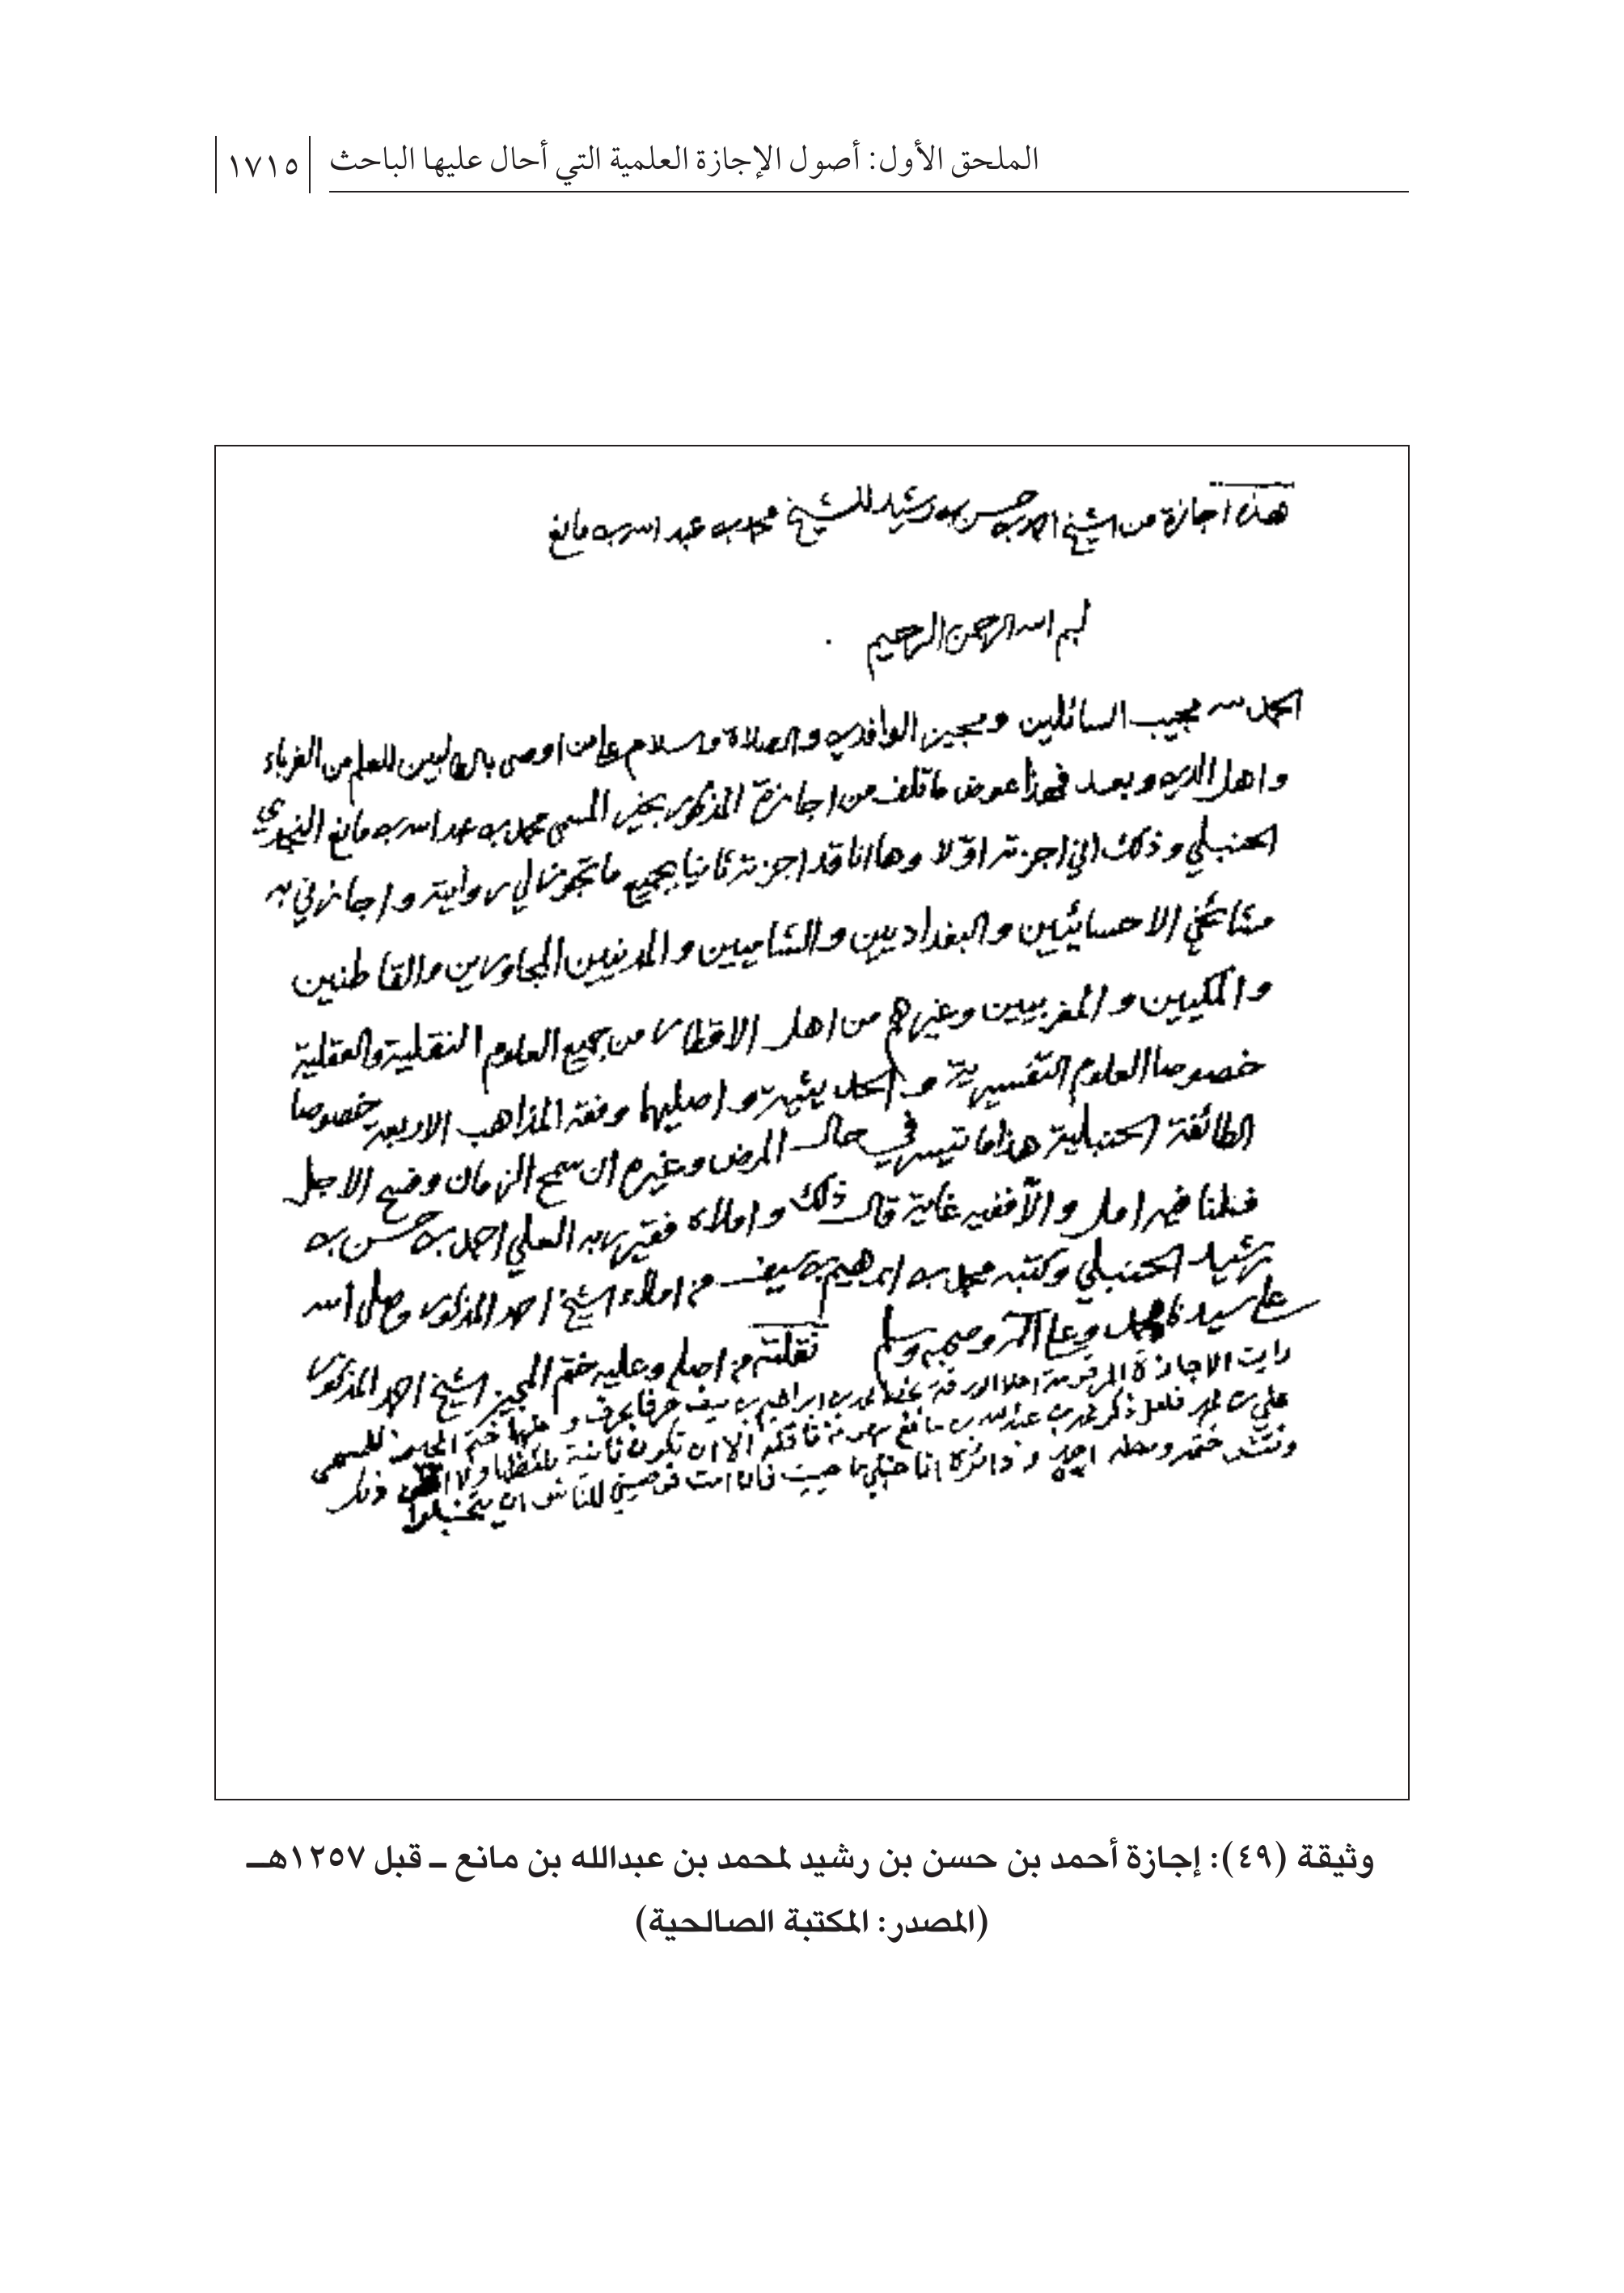 الملحق الأول: أصول الإجازة العلمية التي أحال عليها الباحث ١٧١٥
هذه اجازة من الشيخ احمد بن حسن بن رشيد للشيخ محمد بن عبد الله بن مانع
بسم الله الرحمن الرحيم
الحمد لله مجيب السائلين ومجيز الوافدين والصلاة والسلام على من اوصى بالطالبين للعلم من الغرباء
واهل الدين وبعد فهذا عوض ما تلف من اجازة المذكور بخير المسمى محمد بن عبد الله بن مانع النجدي
الحنبلي وذلك اني اجزته اوّلا وها انا قد اجزته ثانيا بجميع ما تجوز لي روايته واجازني به
مشائخي الاحسائيين والبغداديين والشاميين والمدنيين المجاورين والقاطنين
والمكيين والمغربيين وغيرهم من اهل الاقطار من جميع العلوم النقلية والعقلية
خصوصا العلوم التفسيرية والحديثية واصليها وفقه المذاهب الاربعه خصوصا
الطائفة الحنبلية هذا ما تيسر في حال المرض وغيره ان سمح الزمان وفسح الاجل
فلنا فيه امل والا ففيه غاية قال ذلك واملاه فقير ربه العلي احمد بن حسن بن
رشيد الحنبلي وكتبه محمد بن ابرهيم بن سيف من املاء الشيخ احمد المذكور وصلى الله
على سيدنا محمد وعلى آله وصحبه وسلم نقلته من اصله وعليه ختم المجيز الشيخ احمد المذكور
رايت الاجازة المرقومة اعلا الورقة بخط محمد بن ابراهيم بن سيف حرفا بحرف وعليها ختم المجيز للمسمى
علي بن محمد فلعل ذكر محمد بن عبد الله بن مانع سهو الا ان تكون ثانية بلفظها ولا ذلك
ونقش ختمه وسطه احمد و دائرة انا حنبلي ما حييت فان امت فوصيتي للناس ان يتحنبلوا
وثيقة (٤٩): إجازة أحمد بن حسن بن رشيد لمحمد بن عبدالله بن مانع ـ قبل ١٢٥٧هـ
(المصدر: المكتبة الصالحية)